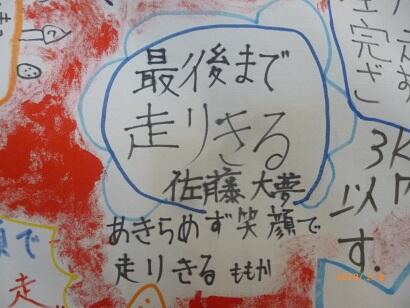 最後まで
走りきる
佐藤大夢
あきらめず笑顔で
走りきる ももか
3K
以
す.
で
走